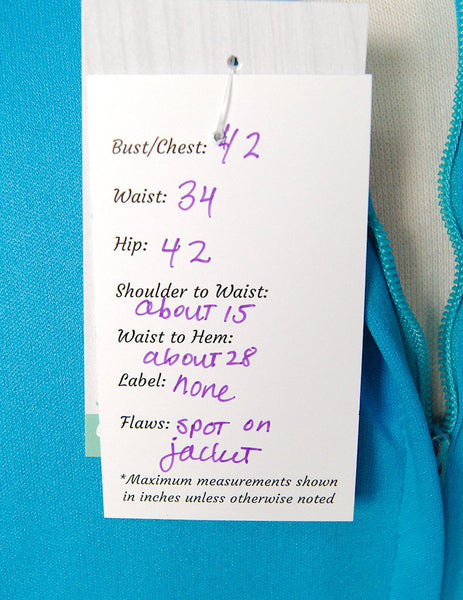 Bust/Chest: 42
Waist: 34
Hip: 42
Shoulder to Waist:
about 15
Waist to Hem:
about 28
Label: none
Flaws: spot on
jacket
*Maximum measurements shown
in inches unless otherwise noted